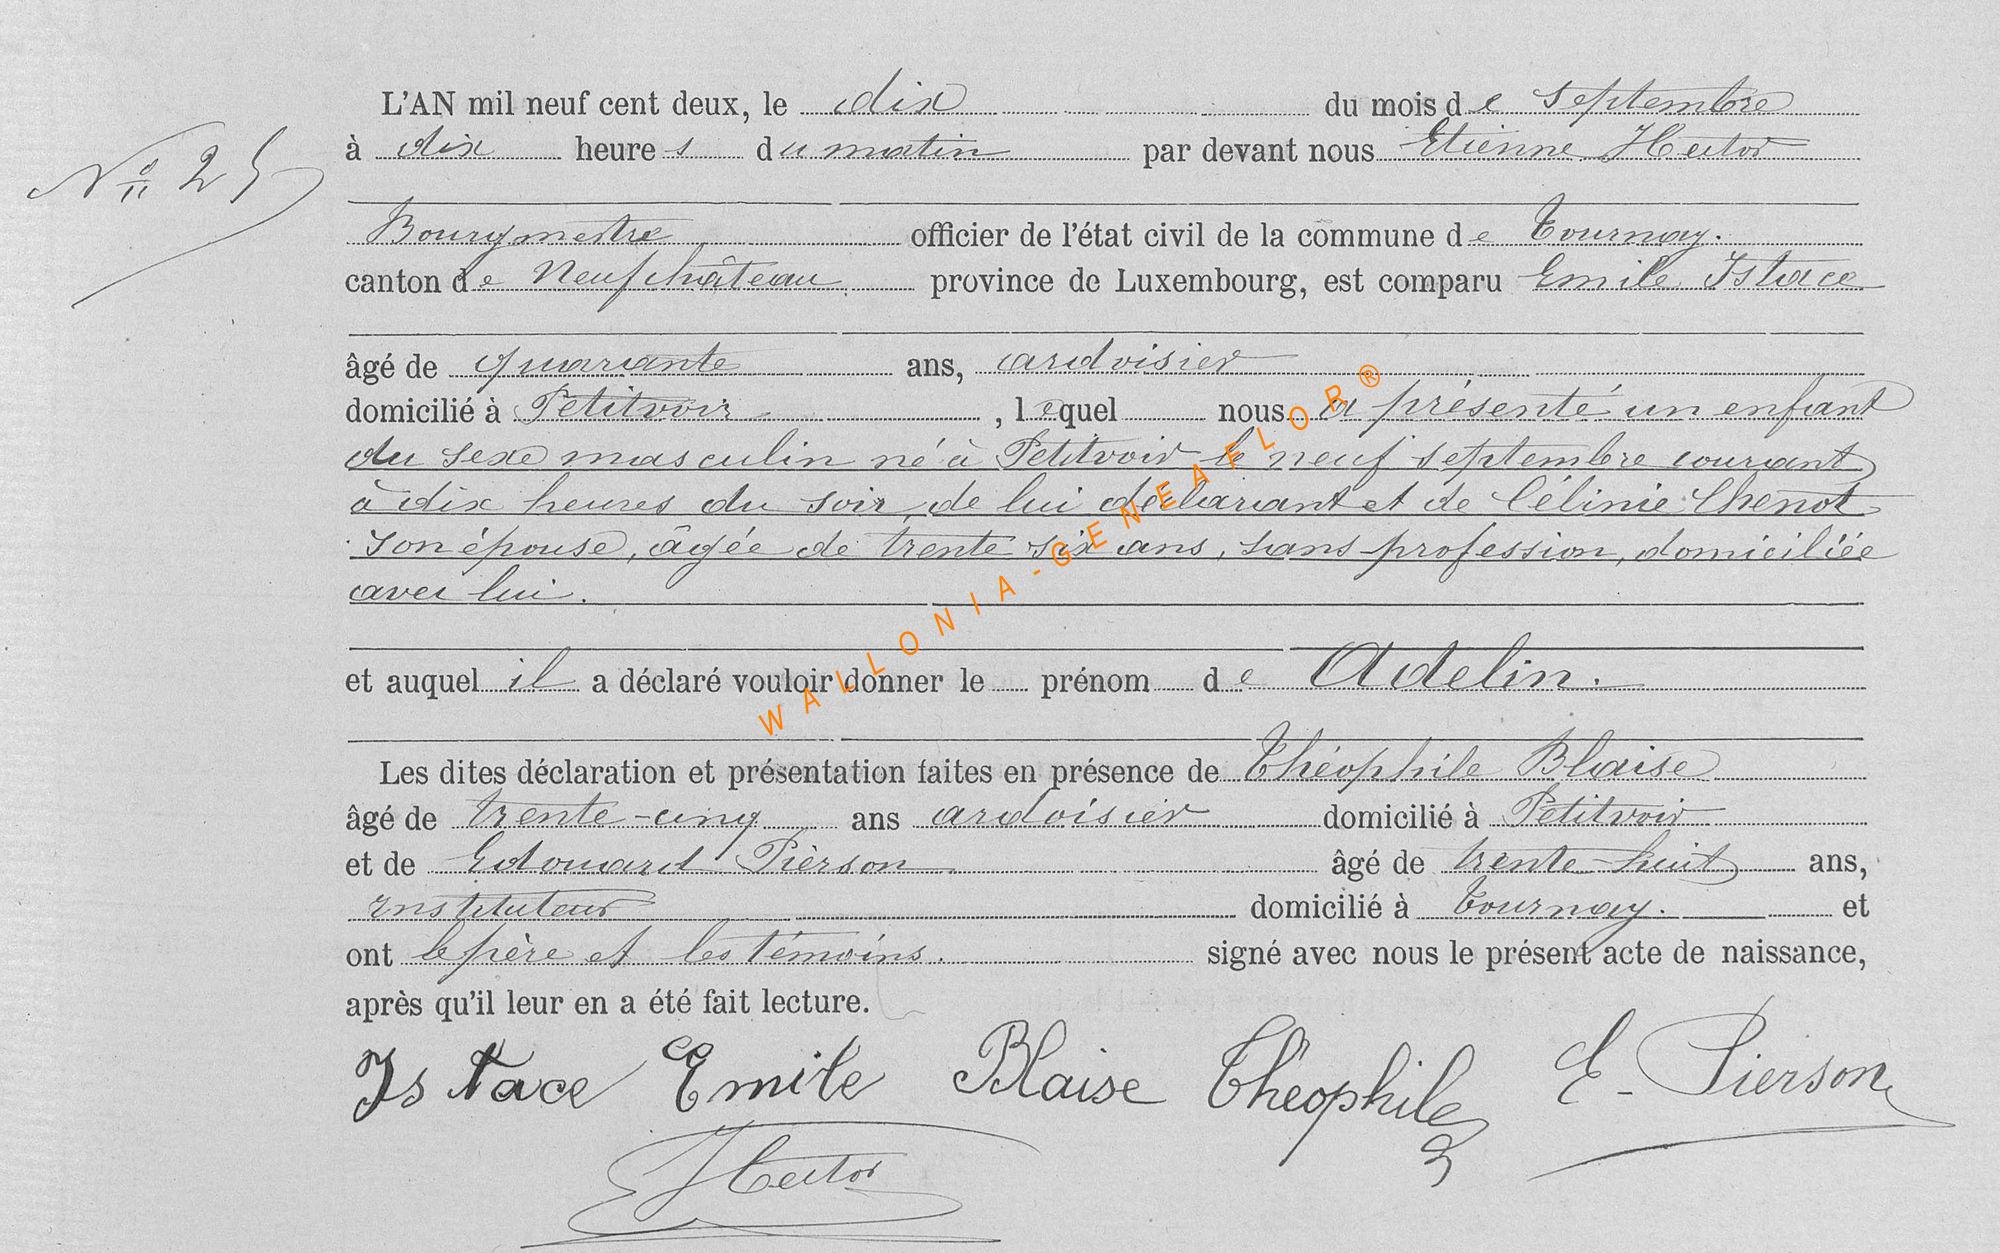 L'AN mil neuf cent deux, le dix du mois de septembre
Nº 25
à dix heures du matin par devant nous Etienne Hector
Bourgmestre officier de l'état civil de la commune de Tournay.
canton de Neufchâteau province de Luxembourg, est comparu Emile Istace
âgé de quarante ans, ardoisier
domicilié à Petitvoir, lequel nous a présenté un enfant
du sexe masculin né à Petitvoir le neuf septembre courant
à dix heures du soir, de lui déclarant et de Célinie Chenot
son épouse, âgée de trente six ans, sans profession, domiciliée
avec lui.
et auquel il a déclaré vouloir donner le prénom de Adelin.
Les dites déclaration et présentation faites en présence de Théophile Blaise
âgé de trente-cinq ans ardoisier domicilié à Petitvoir
et de Edouard Pièrson âgé de trente-huit ans,
instituteur domicilié à Tournay. et
ont le père et les témoins. signé avec nous le présent acte de naissance,
après qu'il leur en a été fait lecture.
Istace Emile Blaise Théophile E. Pierson
Hector
WALLONIA-GENEAFLOR®